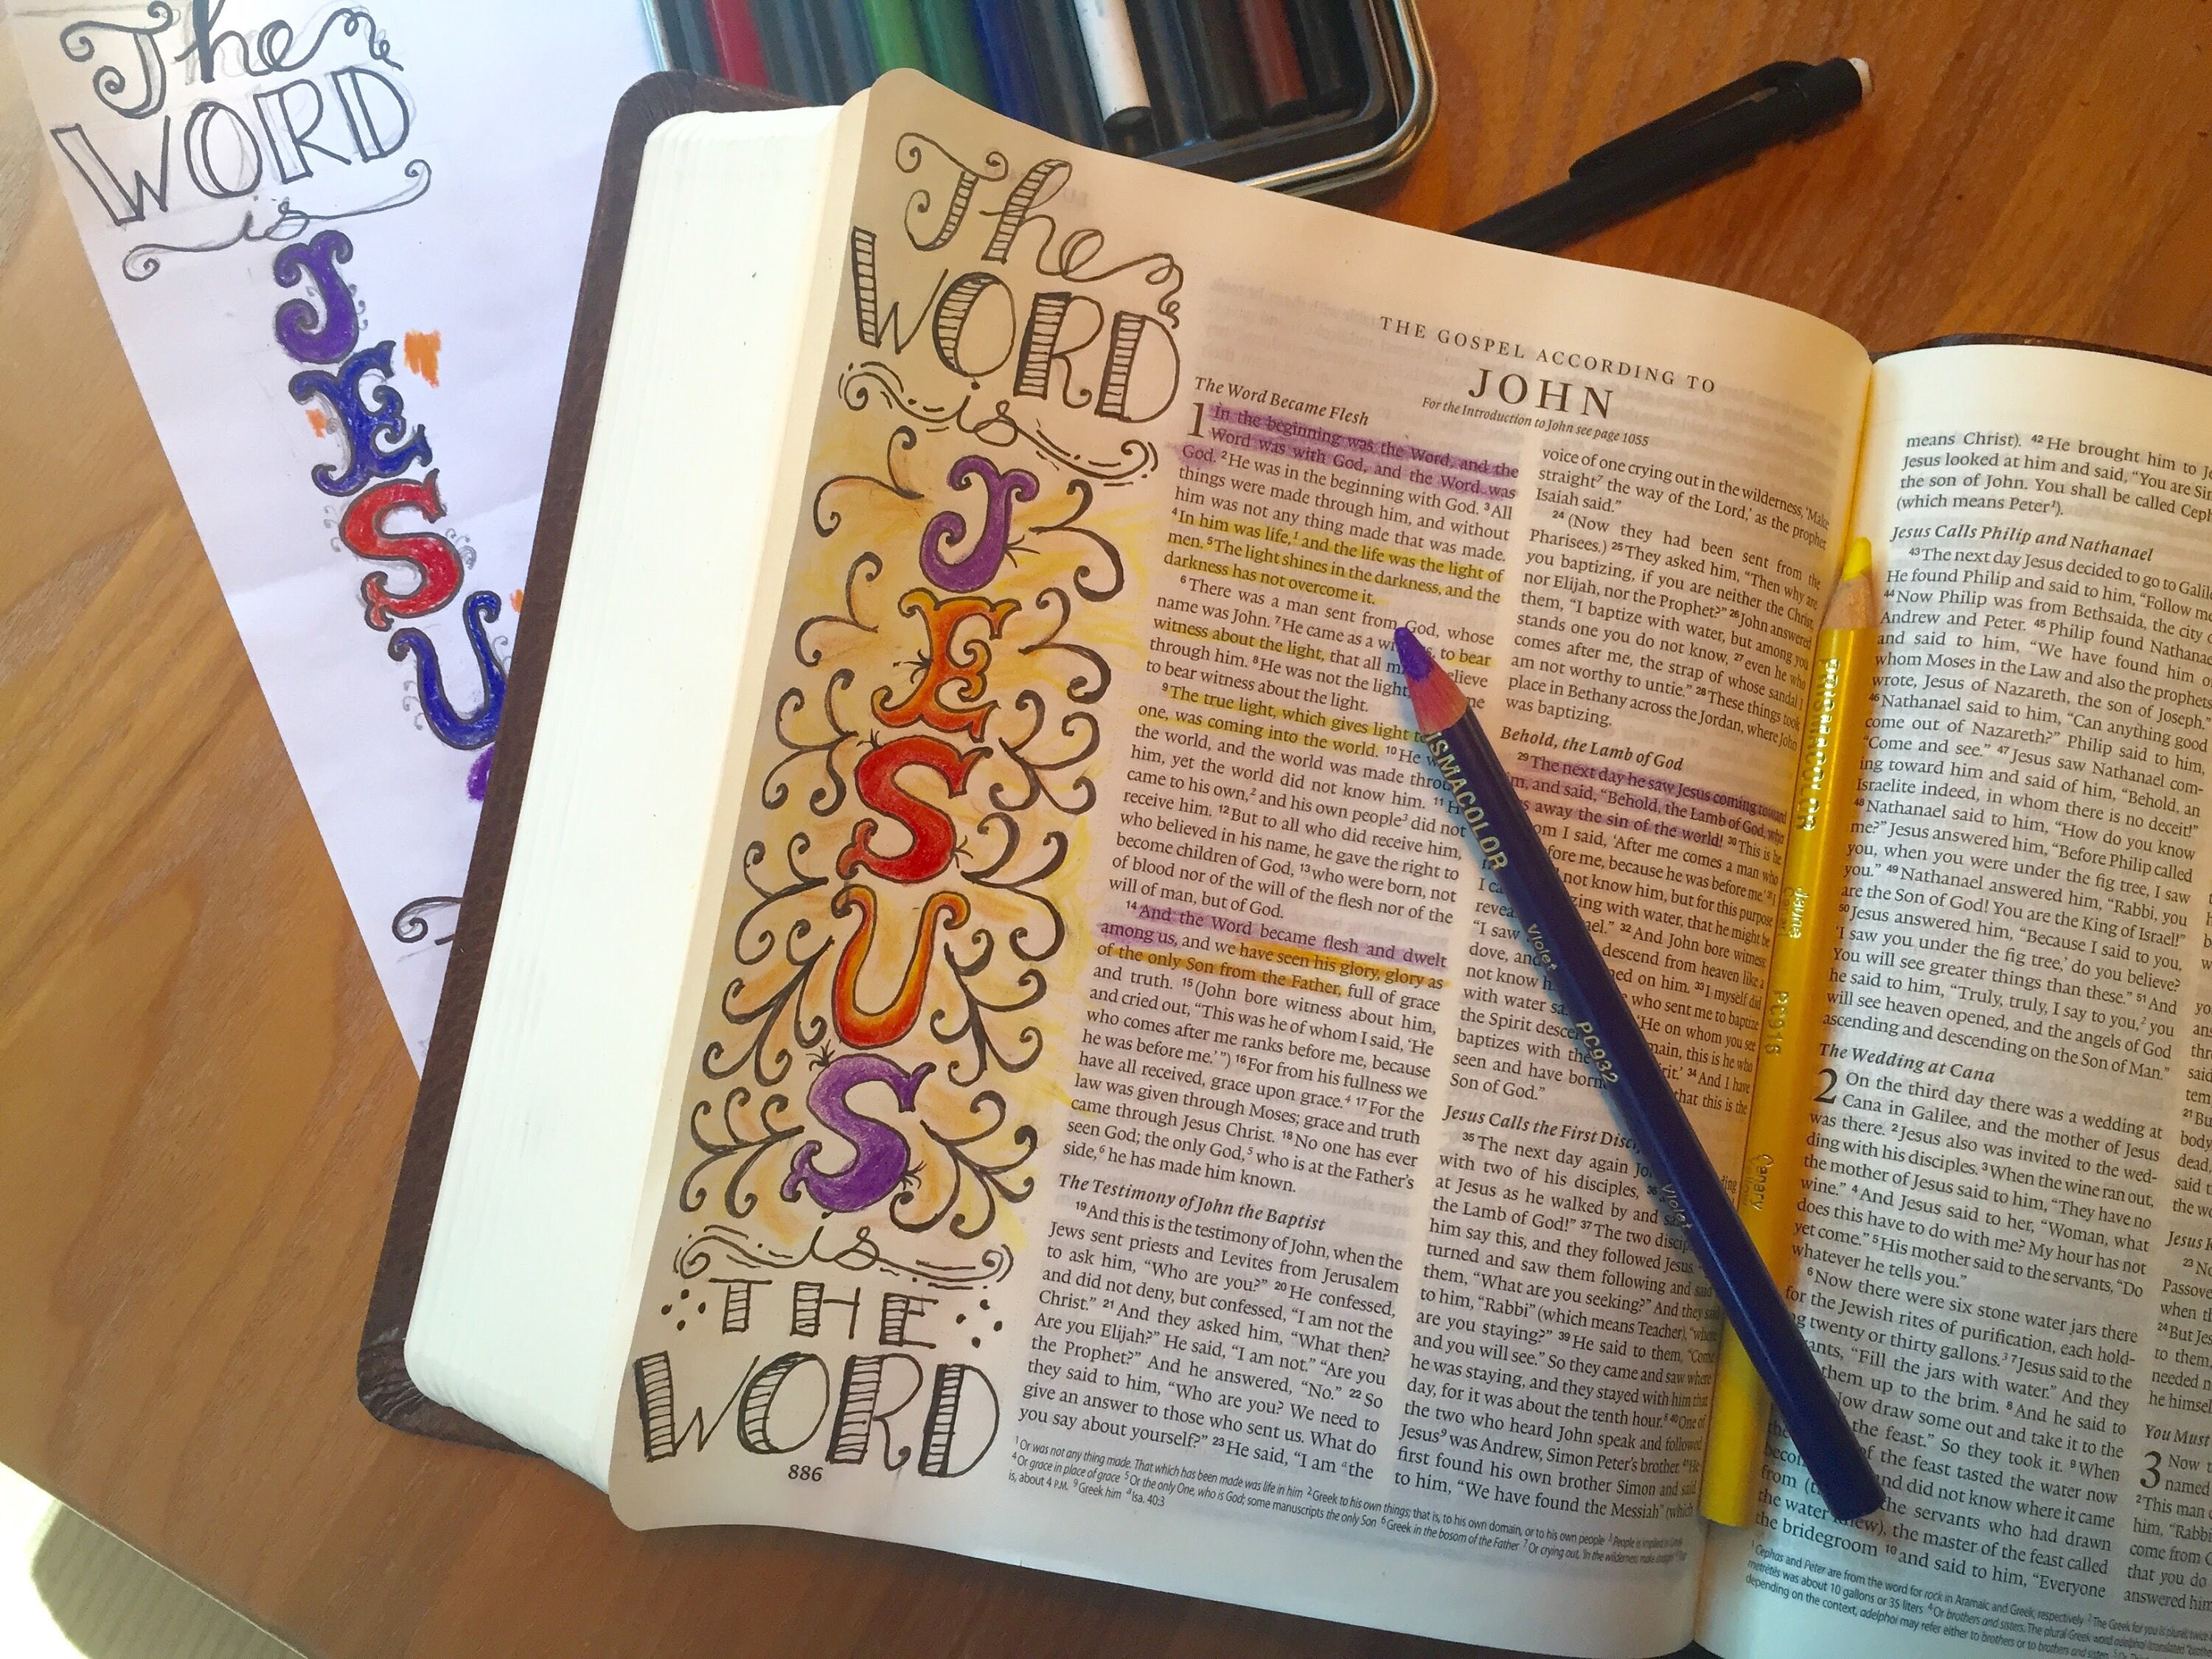 The
WORD
is
JESU
The
WORD
is
JESUS
is
THE
WORD
886
THE GOSPEL ACCORDING TO
JOHN
For the Introduction to John see page 1055
The Word Became Flesh
1 In the beginning was the Word, and the
Word was with God, and the Word was
God. 2 He was in the beginning with God. 3 All
things were made through him, and without
him was not any thing made that was made.
4 In him was life,1 and the life was the light of
men. 5 The light shines in the darkness, and the
darkness has not overcome it.
6 There was a man sent from God, whose
name was John. 7 He came as a to bear
witness about the light, that all
through him. 8 He was not the light,
to bear witness about the light.
9 The true light, which gives light
one, was coming into the world. 10 He
the world, and the world was made
him, yet the world did not know him. 11
came to his own,2 and his own people3 did not
receive him. 12 But to all who did receive him,
who believed in his name, he gave the right to
become children of God, 13 who were born, not
of blood nor of the will of the flesh nor of the
will of man, but of God.
14 And the Word became flesh and dwelt
among us, and we have seen his glory, glory as
of the only Son from the Father, full of grace
and truth. 15 (John bore witness about him,
and cried out, “This was he of whom I said, ‘He
who comes after me ranks before me, because
he was before me.’”) 16 For from his fullness we
have all received, grace upon grace.4 17 For the
law was given through Moses; grace and truth
came through Jesus Christ. 18 No one has ever
seen God; the only God,5 who is at the Father’s
side,6 he has made him known.
The Testimony of John the Baptist
19 And this is the testimony of John, when the
Jews sent priests and Levites from Jerusalem
to ask him, “Who are you?” 20 He confessed,
and did not deny, but confessed, “I am not the
Christ.” 21 And they asked him, “What then?
Are you Elijah?” He said, “I am not.” “Are you
the Prophet?” And he answered, “No.” 22 So
they said to him, “Who are you? We need to
give an answer to those who sent us. What do
you say about yourself?” 23 He said, “I am the
voice of one crying out in the wilderness, ‘Make
straight7 the way of the Lord,’ as the prophet
Isaiah said.”
24 (Now they had been sent from the
Pharisees.) 25 They asked him, “Then why are
you baptizing, if you are neither the Christ,
nor Elijah, nor the Prophet?” 26 John answered
them, “I baptize with water, but among you
stands one you do not know, 27 even he who
comes after me, the strap of whose sandal I
am not worthy to untie.” 28 These things took
place in Bethany across the Jordan, where John
was baptizing.
Behold, the Lamb of God
29 The next day he saw Jesus coming toward
and said, “Behold, the Lamb of God, who
away the sin of the world! 30 This is he
I said, ‘After me comes a man who
because he was before me.’ 31 I
not know him, but for this purpose
with water, that he might be
32 And John bore witness:
“I saw descend from heaven like a
dove, and on him. 33 I myself did
not know who sent me to baptize
with water ‘He on whom you see
the Spirit this is he who
baptizes with the 34 And I have
seen and have that this is the
Son of God.”
Jesus Calls the First
35 The next day again
with two of his disciples,
at Jesus as he walked by and
the Lamb of God!” 37 The two
him say this, and they followed Jesus.
turned and saw them following and said
them, “What are you seeking?” And they said
to him, “Rabbi” (which means Teacher), “where
are you staying?” 39 He said to them, “Come
and you will see.” So they came and saw where
he was staying, and they stayed with him that
day, for it was about the tenth hour.8 40 One of
the two who heard John speak and followed
Jesus9 was Andrew, Simon Peter’s brother. 41 He
first found his own brother Simon and said
to him, “We have found the Messiah” (which
1 Or was not any thing made. That which has been made was life in him 2 Greek to his own things; that is, to his own domain, or to his own people 3 People is implied in Greek
4 Or grace in place of grace 5 Or the only One, who is God; some manuscripts the only Son 6 Greek in the bosom of the Father 7 Or crying out, ‘In the wilderness make straight
is, about 4 P.M. 9 Greek him a Isa. 40:3
PRISMACOLOR Canary PC916
ISMACOLOR Violet PC932 Violet
means Christ). 42 He brought him to
Jesus looked at him and said, “You are
the son of John. You shall be called
(which means Peter1).
Jesus Calls Philip and Nathanael
43 The next day Jesus decided to go to
He found Philip and said to him, “Follow
44 Now Philip was from Bethsaida, the city
Andrew and Peter. 45 Philip found
and said to him, “We have found him
whom Moses in the Law and also the prophets
wrote, Jesus of Nazareth, the son of Joseph.”
46 Nathanael said to him, “Can anything good
come out of Nazareth?” Philip said to him,
“Come and see.” 47 Jesus saw Nathanael com-
ing toward him and said of him, “Behold, an
Israelite indeed, in whom there is no deceit!”
48 Nathanael said to him, “How do you know
me?” Jesus answered him, “Before Philip called
you, when you were under the fig tree, I saw
you.” 49 Nathanael answered him, “Rabbi, you
are the Son of God! You are the King of Israel!”
50 Jesus answered him, “Because I said to you,
‘I saw you under the fig tree,’ do you believe?
You will see greater things than these.” 51 And
he said to him, “Truly, truly, I say to you,2 you
will see heaven opened, and the angels of God
ascending and descending on the Son of Man.”
The Wedding at Cana
2 On the third day there was a wedding at
Cana in Galilee, and the mother of Jesus
was there. 2 Jesus also was invited to the wed-
ding with his disciples. 3 When the wine ran out,
the mother of Jesus said to him, “They have no
wine.” 4 And Jesus said to her, “Woman, what
does this have to do with me? My hour has not
yet come.” 5 His mother said to the servants, “Do
whatever he tells you.”
6 Now there were six stone water jars there
for the Jewish rites of purification, each hold-
twenty or thirty gallons.3 7 Jesus said to the
“Fill the jars with water.” And they
them up to the brim. 8 And he said to
draw some out and take it to the
the feast.” So they took it. 9 When
of the feast tasted the water now
and did not know where it came
from the servants who had drawn
the water knew), the master of the feast called
the bridegroom 10 and said to him, “Everyone
1 Cephas and Peter are from the word for rock in Aramaic and Greek, respectively 2 The Greek for you is plural; twice
metrētēs was about 10 gallons or 35 liters 4 Or brothers and sisters. The plural Greek word adelphoi
depending on the context, adelphoi may refer either to brothers or to brothers and sisters
You Must
3 Now
named
2 This man
him, “Rabbi
come from
that you do
answered him